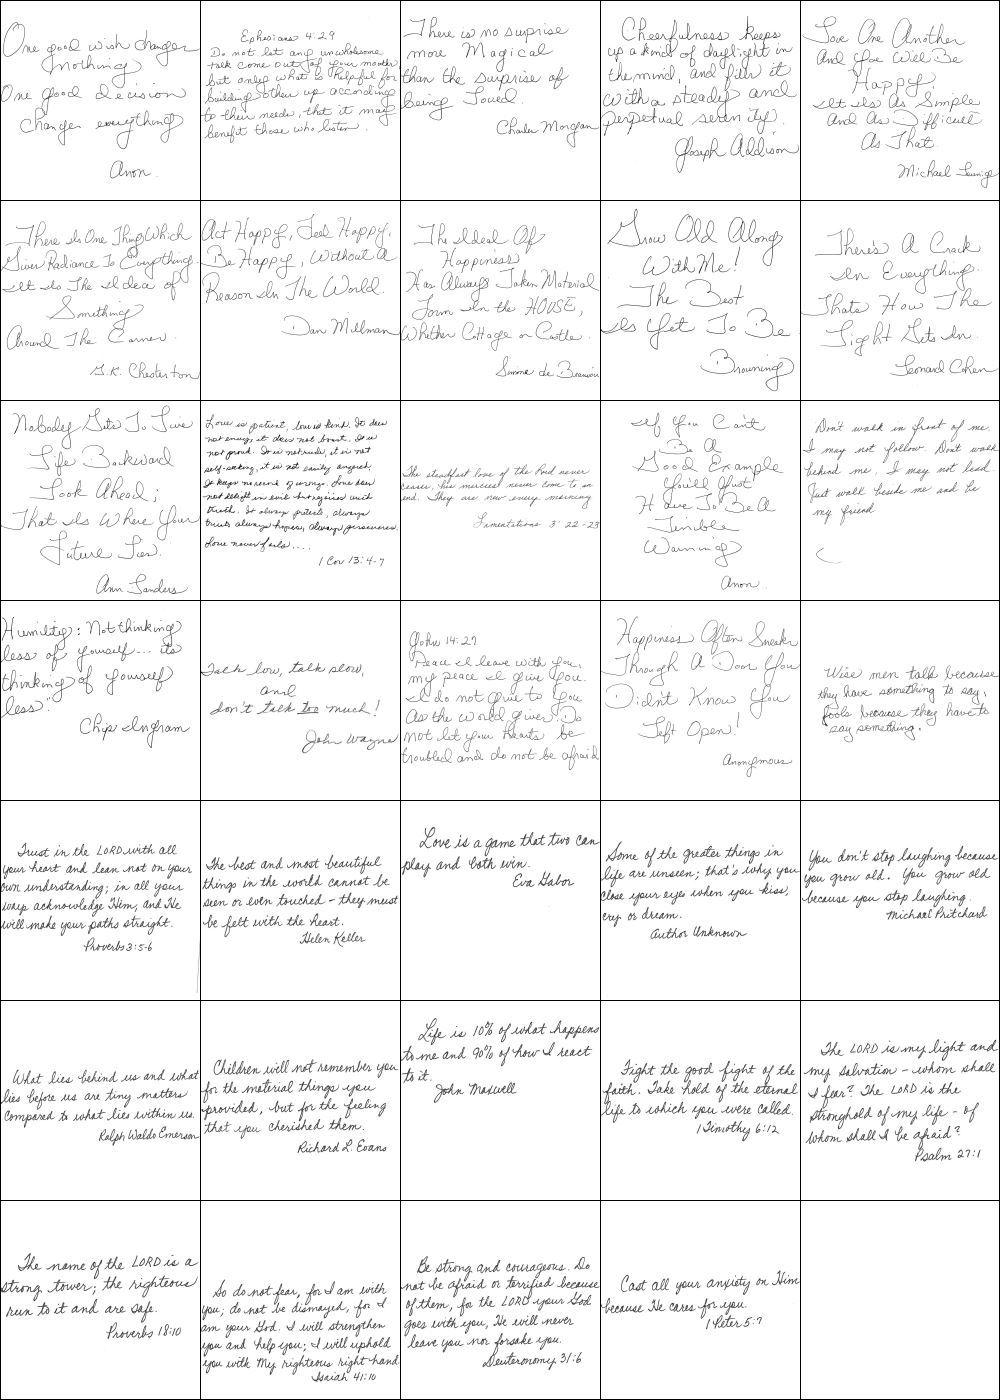 One good wish changes
nothing
One good decision
changes everything
Anon.
Ephesians 4:29
Do not let any unwholesome
talk come out of your mouths
but only what is helpful for
building others up according
to their needs, that it may
benefit those who listen.
There is no suprise
more Magical
than the surprise of
being loved.
Charles Morgan
Cheerfulness keeps
up a kind of daylight in
the mind, and fills it
with a steady and
perpetual serenity.
Joseph Addison
Love One Another
And You Will Be
Happy.
It Is As Simple
And As Difficult
As That.
Michael Leunig
There Is One Thing Which
Gives Radiance To Everything.
It Is The Idea of
Something
Around The Corner.
G.K. Chesterton
Act Happy, Feel Happy,
Be Happy, Without A
Reason In The World.
Dan Millman
The Ideal Of
Happiness
Has Always Taken Material
Form In the HOUSE,
Whether Cottage or Castle.
Simone de Beauvoir
Grow Old Along
With Me!
The Best
Is Yet To Be
Browning
There's A Crack
In Everything.
Thats How The
Light Gets In.
Leonard Cohen
Nobody Gets To Live
Life Backward
Look Ahead;
That Is Where Your
Future Lies.
Ann Landers
Love is patient, love is kind. It does
not envy, it does not boast. It is
not proud. It is not rude, it is not
self-seeking, it is not easily angered,
It keeps no record of wrongs. Love does
not delight in evil but rejoices with
truth. It always protects, always
trusts always hopes, always perseveres.
Love never fails....
1 Cor 13:4-7
The steadfast love of the Lord never
ceases, his mercies never come to an
end. They are new every morning
Lamentations 3:22-23
If You Can't
Be A
Good Example
You'll Just
Have To Be A
Terrible
Warning
Anon.
Don't walk in front of me.
I may not follow. Don't walk
behind me, I may not lead.
Just walk beside me and be
my friend
Humility: Not thinking
less of yourself... its
thinking of yourself
less."
Chip Ingram
Talk low, talk slow,
and
don't talk too much!
John Wayne
John 14:27
Peace I leave with you,
my peace I give you.
I do not give to you
As the world gives. Do
not let your hearts be
troubled and do not be afraid
Happiness Often Sneaks
Through A Door You
Didn't Know You
Left Open!
Anonymous
Wise men talk because
they have something to say,
fools because they have to
say something.
Trust in the LORD with all
your heart and lean not on your
own understanding; in all your
ways acknowledge Him, and He
will make your paths straight.
Proverbs 3:5-6
The best and most beautiful
things in the world cannot be
seen or even touched - they must
be felt with the heart.
Helen Keller
Love is a game that two can
play and both win.
Eva Gabor
Some of the greater things in
life are unseen; that's why you
close your eyes when you kiss,
cry or dream.
Author Unknown
You don't stop laughing because
you grow old. You grow old
because you stop laughing.
Michael Pritchard
What lies behind us and what
lies before us are tiny matters
compared to what lies within us.
Ralph Waldo Emerson
Children will not remember you
for the material things you
provided, but for the feeling
that you cherished them.
Richard L. Evans
Life is 10% of what happens
to me and 90% of how I react
to it.
John Maxwell
Fight the good fight of the
faith. Take hold of the eternal
life to which you were called.
1 Timothy 6:12
The LORD is my light and
my salvation - whom shall
I fear? The LORD is the
stronghold of my life - of
whom shall I be afraid?
Psalm 27:1
The name of the LORD is a
strong tower; the righteous
run to it and are safe.
Proverbs 18:10
So do not fear, for I am with
you; do not be dismayed, for I
am your God. I will strengthen
you and help you; I will uphold
you with My righteous right hand.
Isaiah 41:10
Be strong and courageous. Do
not be afraid or terrified because
of them, for the LORD your God
goes with you, He will never
leave you nor forsake you.
Deuteronomy 31:6
Cast all your anxiety on Him
because He cares for you.
1 Peter 5:7